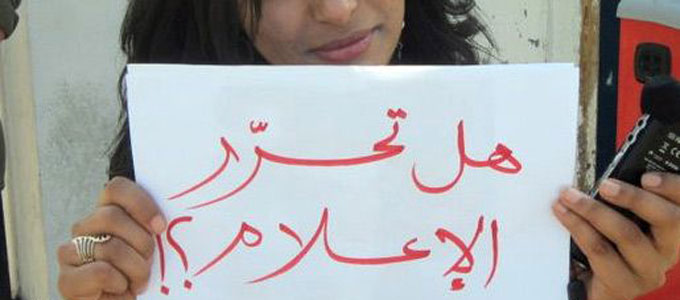 هل تحرّر
الإعلام؟!